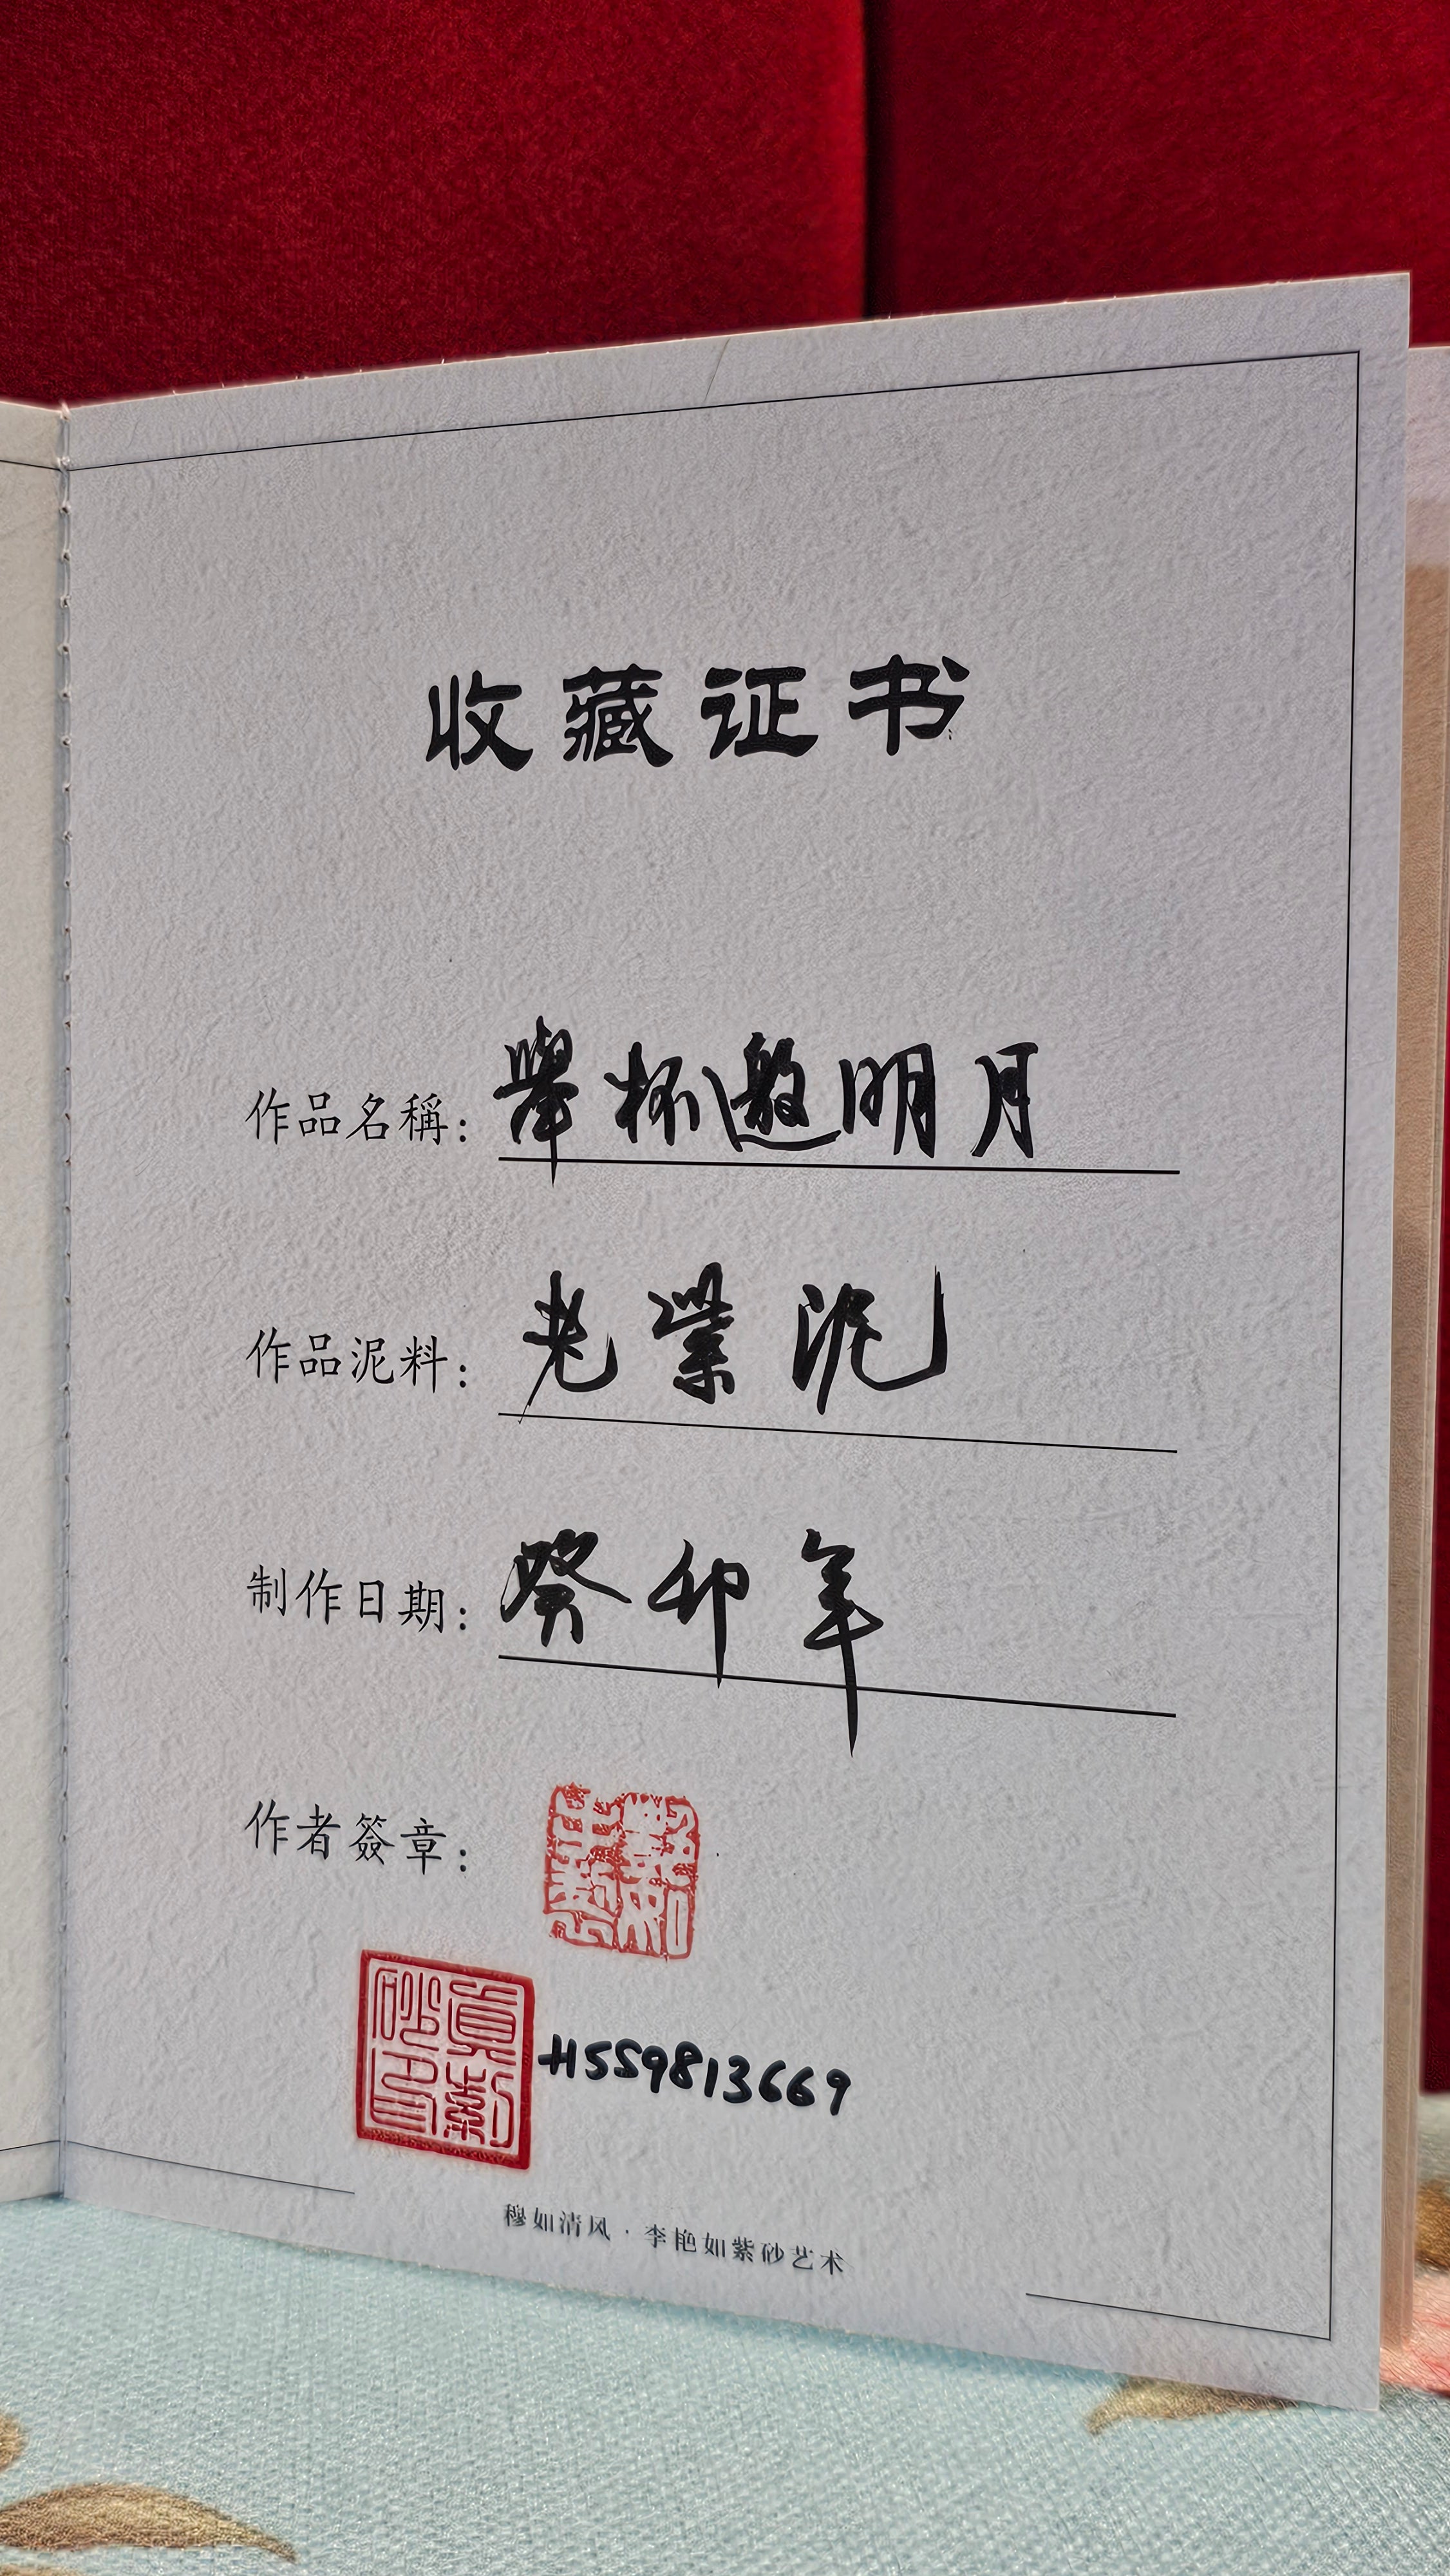 收藏证书
作品名稱：舉杯邀明月
作品泥料：老紫泥
制作日期：癸卯年
作者簽章：
H559813669
穆如清风·李艳如紫砂艺术